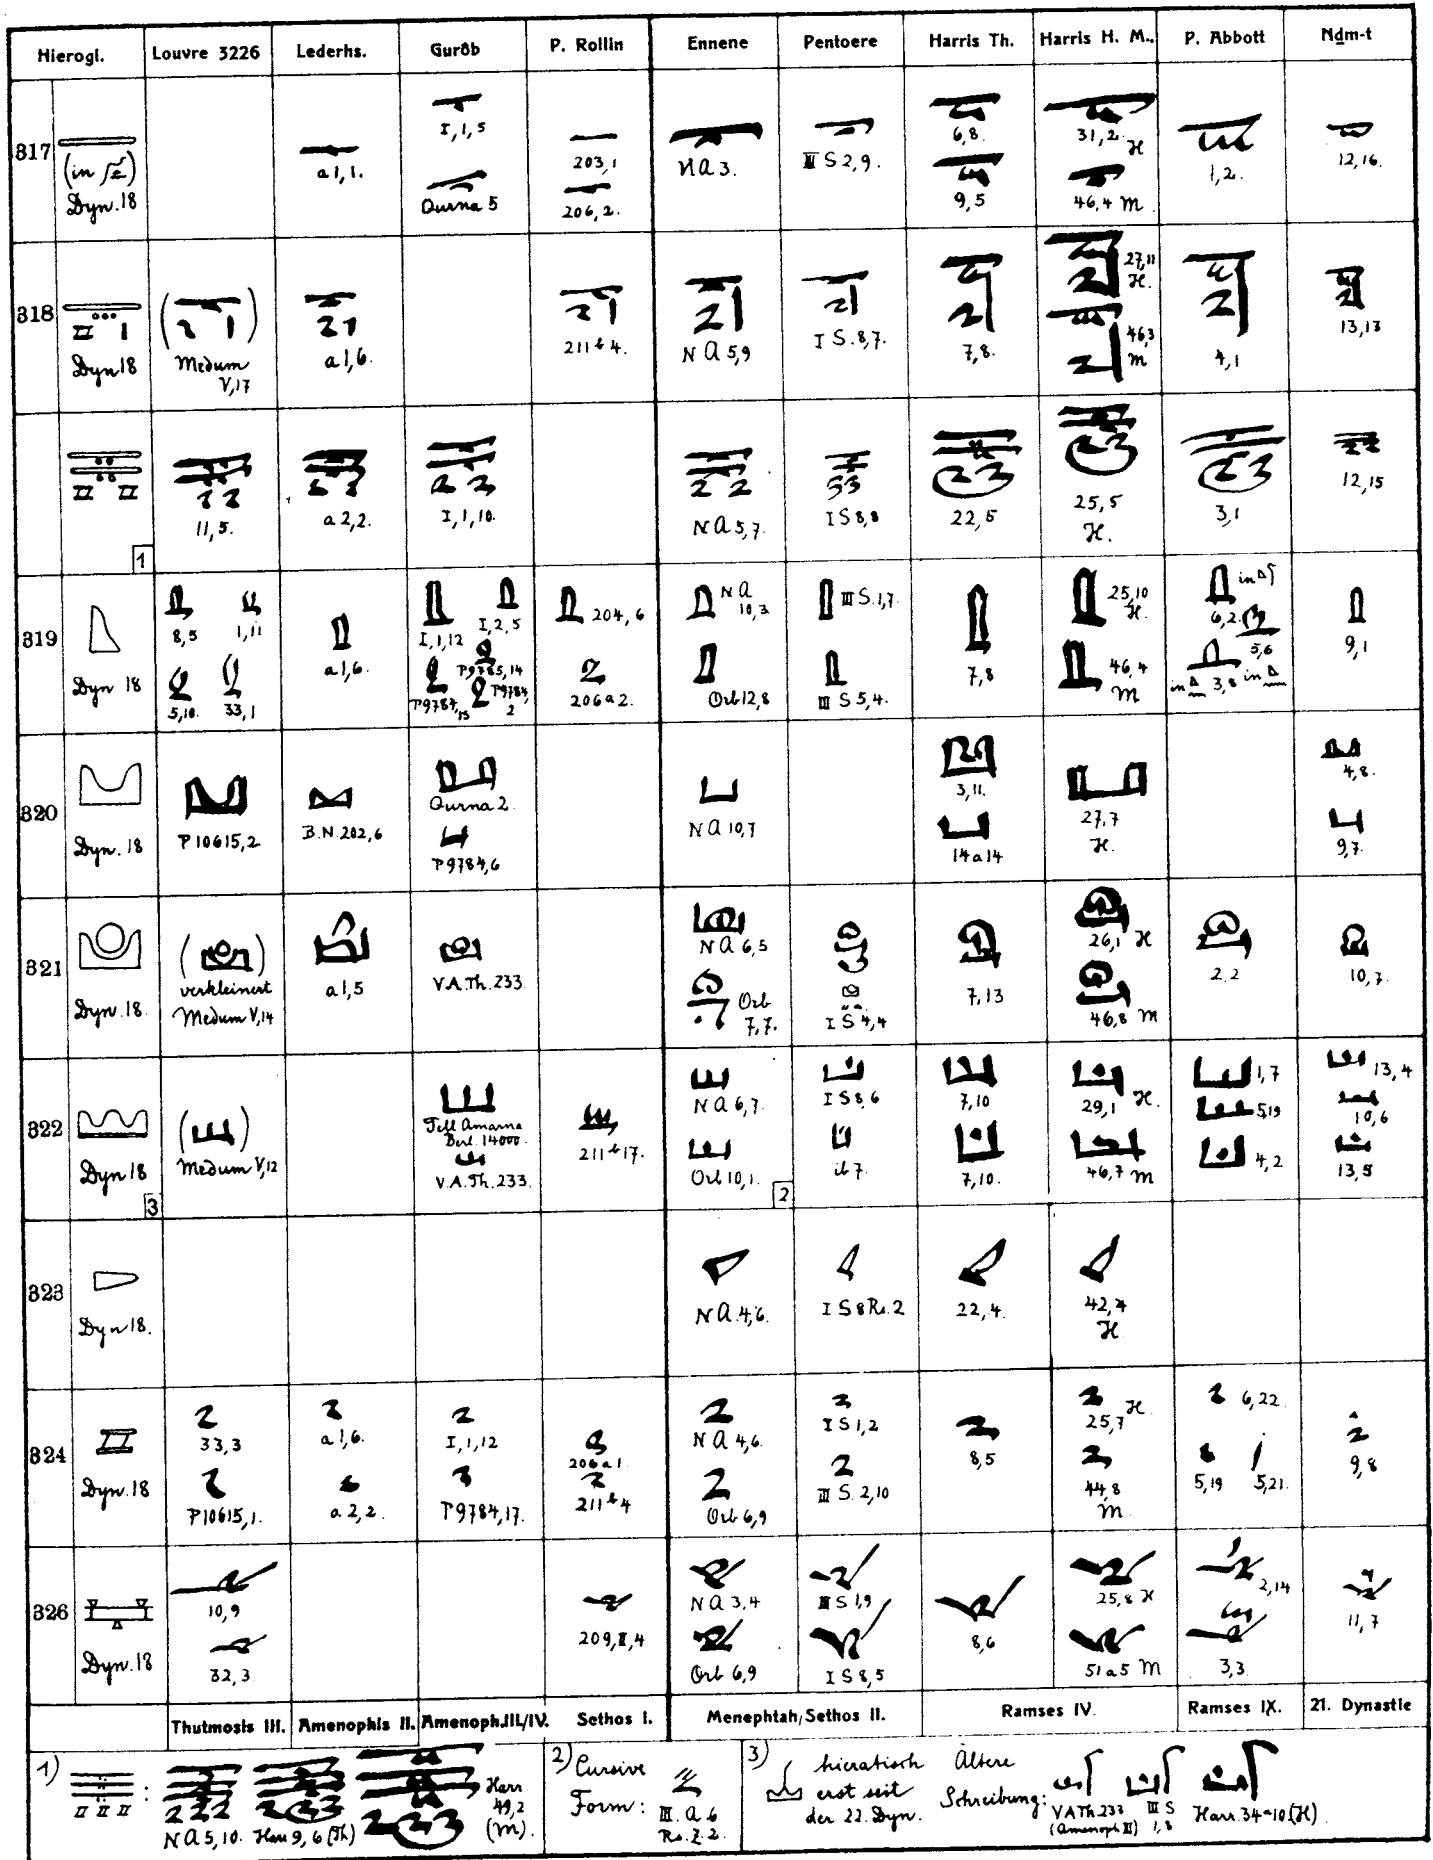 Hierogl. Louvre 3226 Lederhs. Gurôb P. Rollin Ennene Pentoere Harris Th. Harris H. M. P. Abbott Nḏm-t
317
(in
Dyn. 18
a 1, 1.
I, 1, 5
Qurna 5
203, 1
206, 2.
N A 3.
III S 2, 9.
6, 8.
9, 5
31, 2. H
46, 4 M
1, 2.
12, 16.
318
Dyn 18
Medum
V, 17
a 1, 6.
211 b 4.
N A 5, 9
I S. 8, 7.
7, 8.
27, 11
H.
46, 3
M
4, 1
13, 13
1
11, 5.
a 2, 2.
I, 1, 10.
N A 5, 7.
I S 8, 8
22, 5
25, 5
H.
3, 1
12, 15
319
Dyn 18
8, 5 1, 11
5, 10. 33, 1
a 1, 6.
I, 1, 12 I, 2, 5
P 9785, 14
P 9784, 15 P 9784, 2
204, 6
206 a 2.
N A
10, 3
Orb 12, 8
III S. 1, 7.
III S 5, 4.
7, 8
25, 10
H.
46, 4
M
in
6, 2.
5, 6
in 3, 8 in
9, 1
320
Dyn. 18
P 10615, 2
B. N. 202, 6
Qurna 2.
P 9784, 6
N A 10, 7
3, 11.
14 a 14
27, 7
H.
4, 8.
9, 7.
321
Dyn. 18.
verkleinert
Medum V, 14
a 1, 5
V. A. Th. 233.
N A 6, 5
Orb
7, 7.
I S 4, 4
7, 13
26, 1 H
46, 8 M
2. 2
10, 7.
322
Dyn 18
3
Medum V, 12
Tell Amarna
Berl. 14000.
V. A. Th. 233.
211 b 17.
N A 6, 7.
Orb 10, 1.
2
I S 8, 6
ib 7.
7, 10
7, 10.
29, 1 H.
46, 7 M
1, 7
5, 19
4, 2
13, 4
10, 6
13, 5
323
Dyn 18.
N A. 4, 6.
I S 8 Rs. 2
22, 4.
42, 4
H
324
Dyn. 18
33, 3
P 10615, 1.
a 1, 6.
a. 2, 2.
I, 1, 12
P 9784, 17.
206 a 1.
211 b 4
N A 4, 6.
Orb 6, 9
I S 1, 2
III S. 2, 10
8, 5
25, 7 H.
44, 8
M
6, 22
5, 19 5, 21.
9, 8
326
Dyn. 18
10, 9
32, 3.
209, II, 4
N A 3, 4
Orb 6, 9
III S 1, 9
I S 8, 5
8, 6
25, 8 H
51 a 5 M
2, 14
3, 3.
11, 7
Thutmosis III. Amenophis II. Amenoph. III./IV. Sethos I. Menephtah/Sethos II. Ramses IV. Ramses IX. 21. Dynastie
1) :
N A 5, 10. Harr 9, 6 (Th)
Harr
49, 2
(M).
2) Cursive
Form:
III. A. 6
Rs. Z. 2.
3) hieratisch
erst seit
der 22. Dyn.
Ältere
Schreibung:
V A Th. 233
(Amenoph III)
III S
1, 8
Harr. 34 a 10 (H)